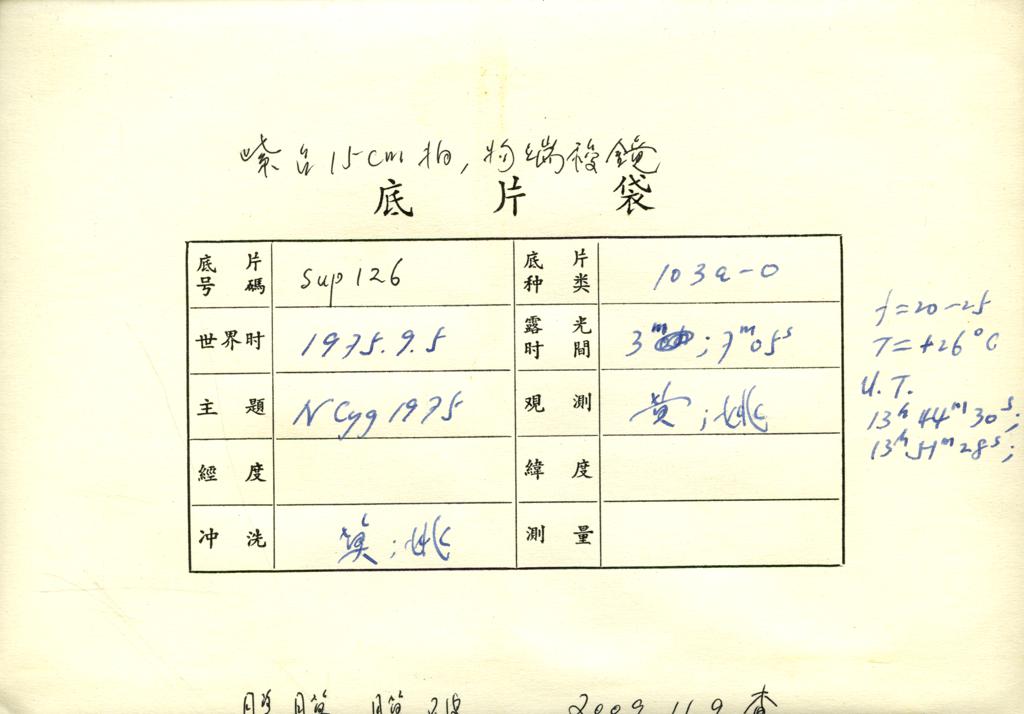 紫台15cm拍，物端棱鏡
底片袋
底片号碼 Sup 126 底片种类 103a-O
世界时 1975.9.5 露光时間 3m ; 7m05s
主題 N Cyg 1975 观測 黄;姚
經度 緯度
冲洗 ;姚 測量
f=20-25
T=+26°C
U.T.
13h44m30s;
13h51m28s;
2009 11 9 查